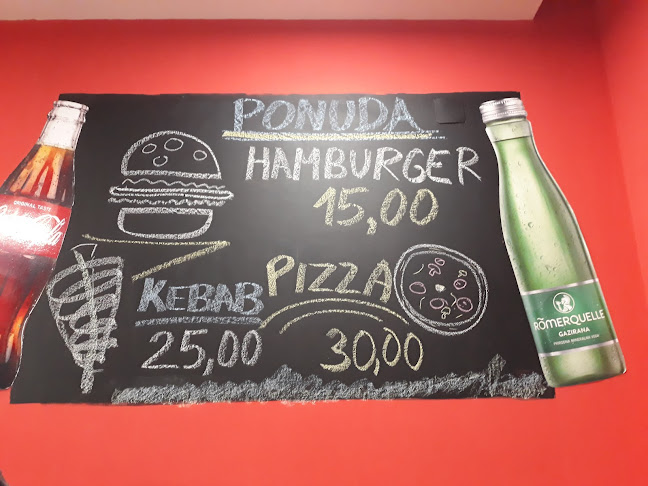 PONUDA
HAMBURGER
15,00
PIZZA
KEBAB
25,00
30,00
ORIGINAL TASTE
Coca-Cola
RÖMERQUELLE
GAZIRANA